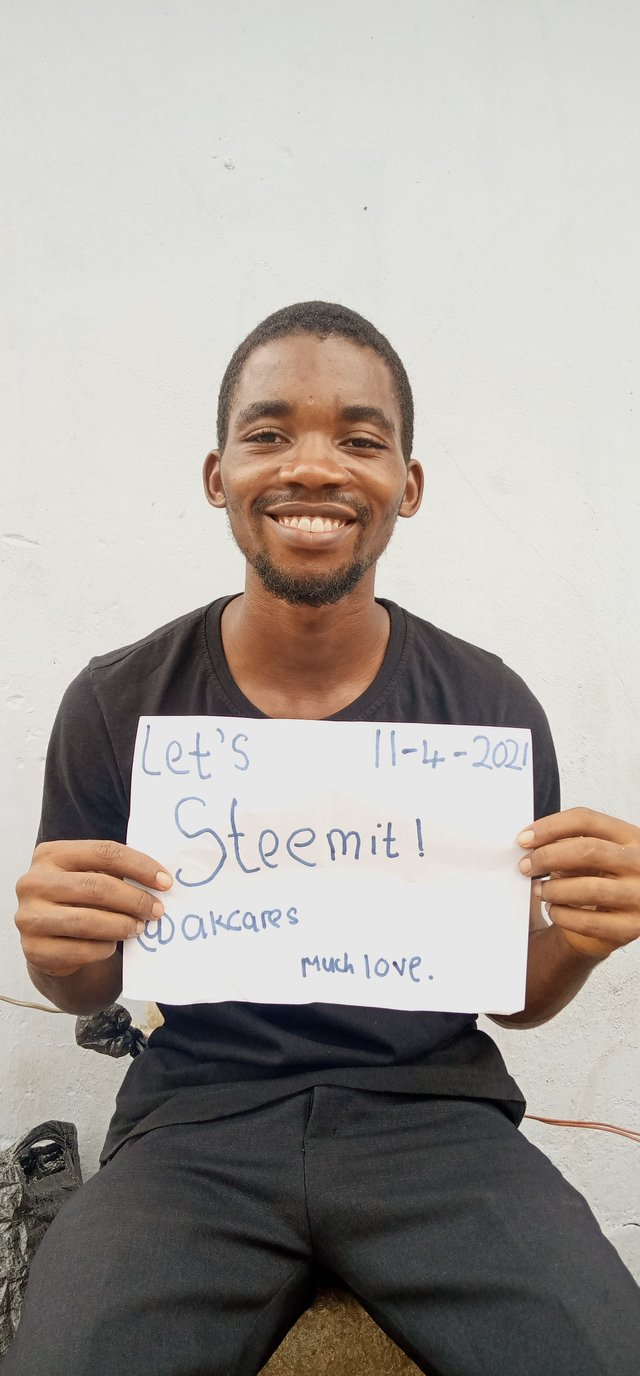 Let's 11-4-2021
Steemit!
@akcares
Much love.